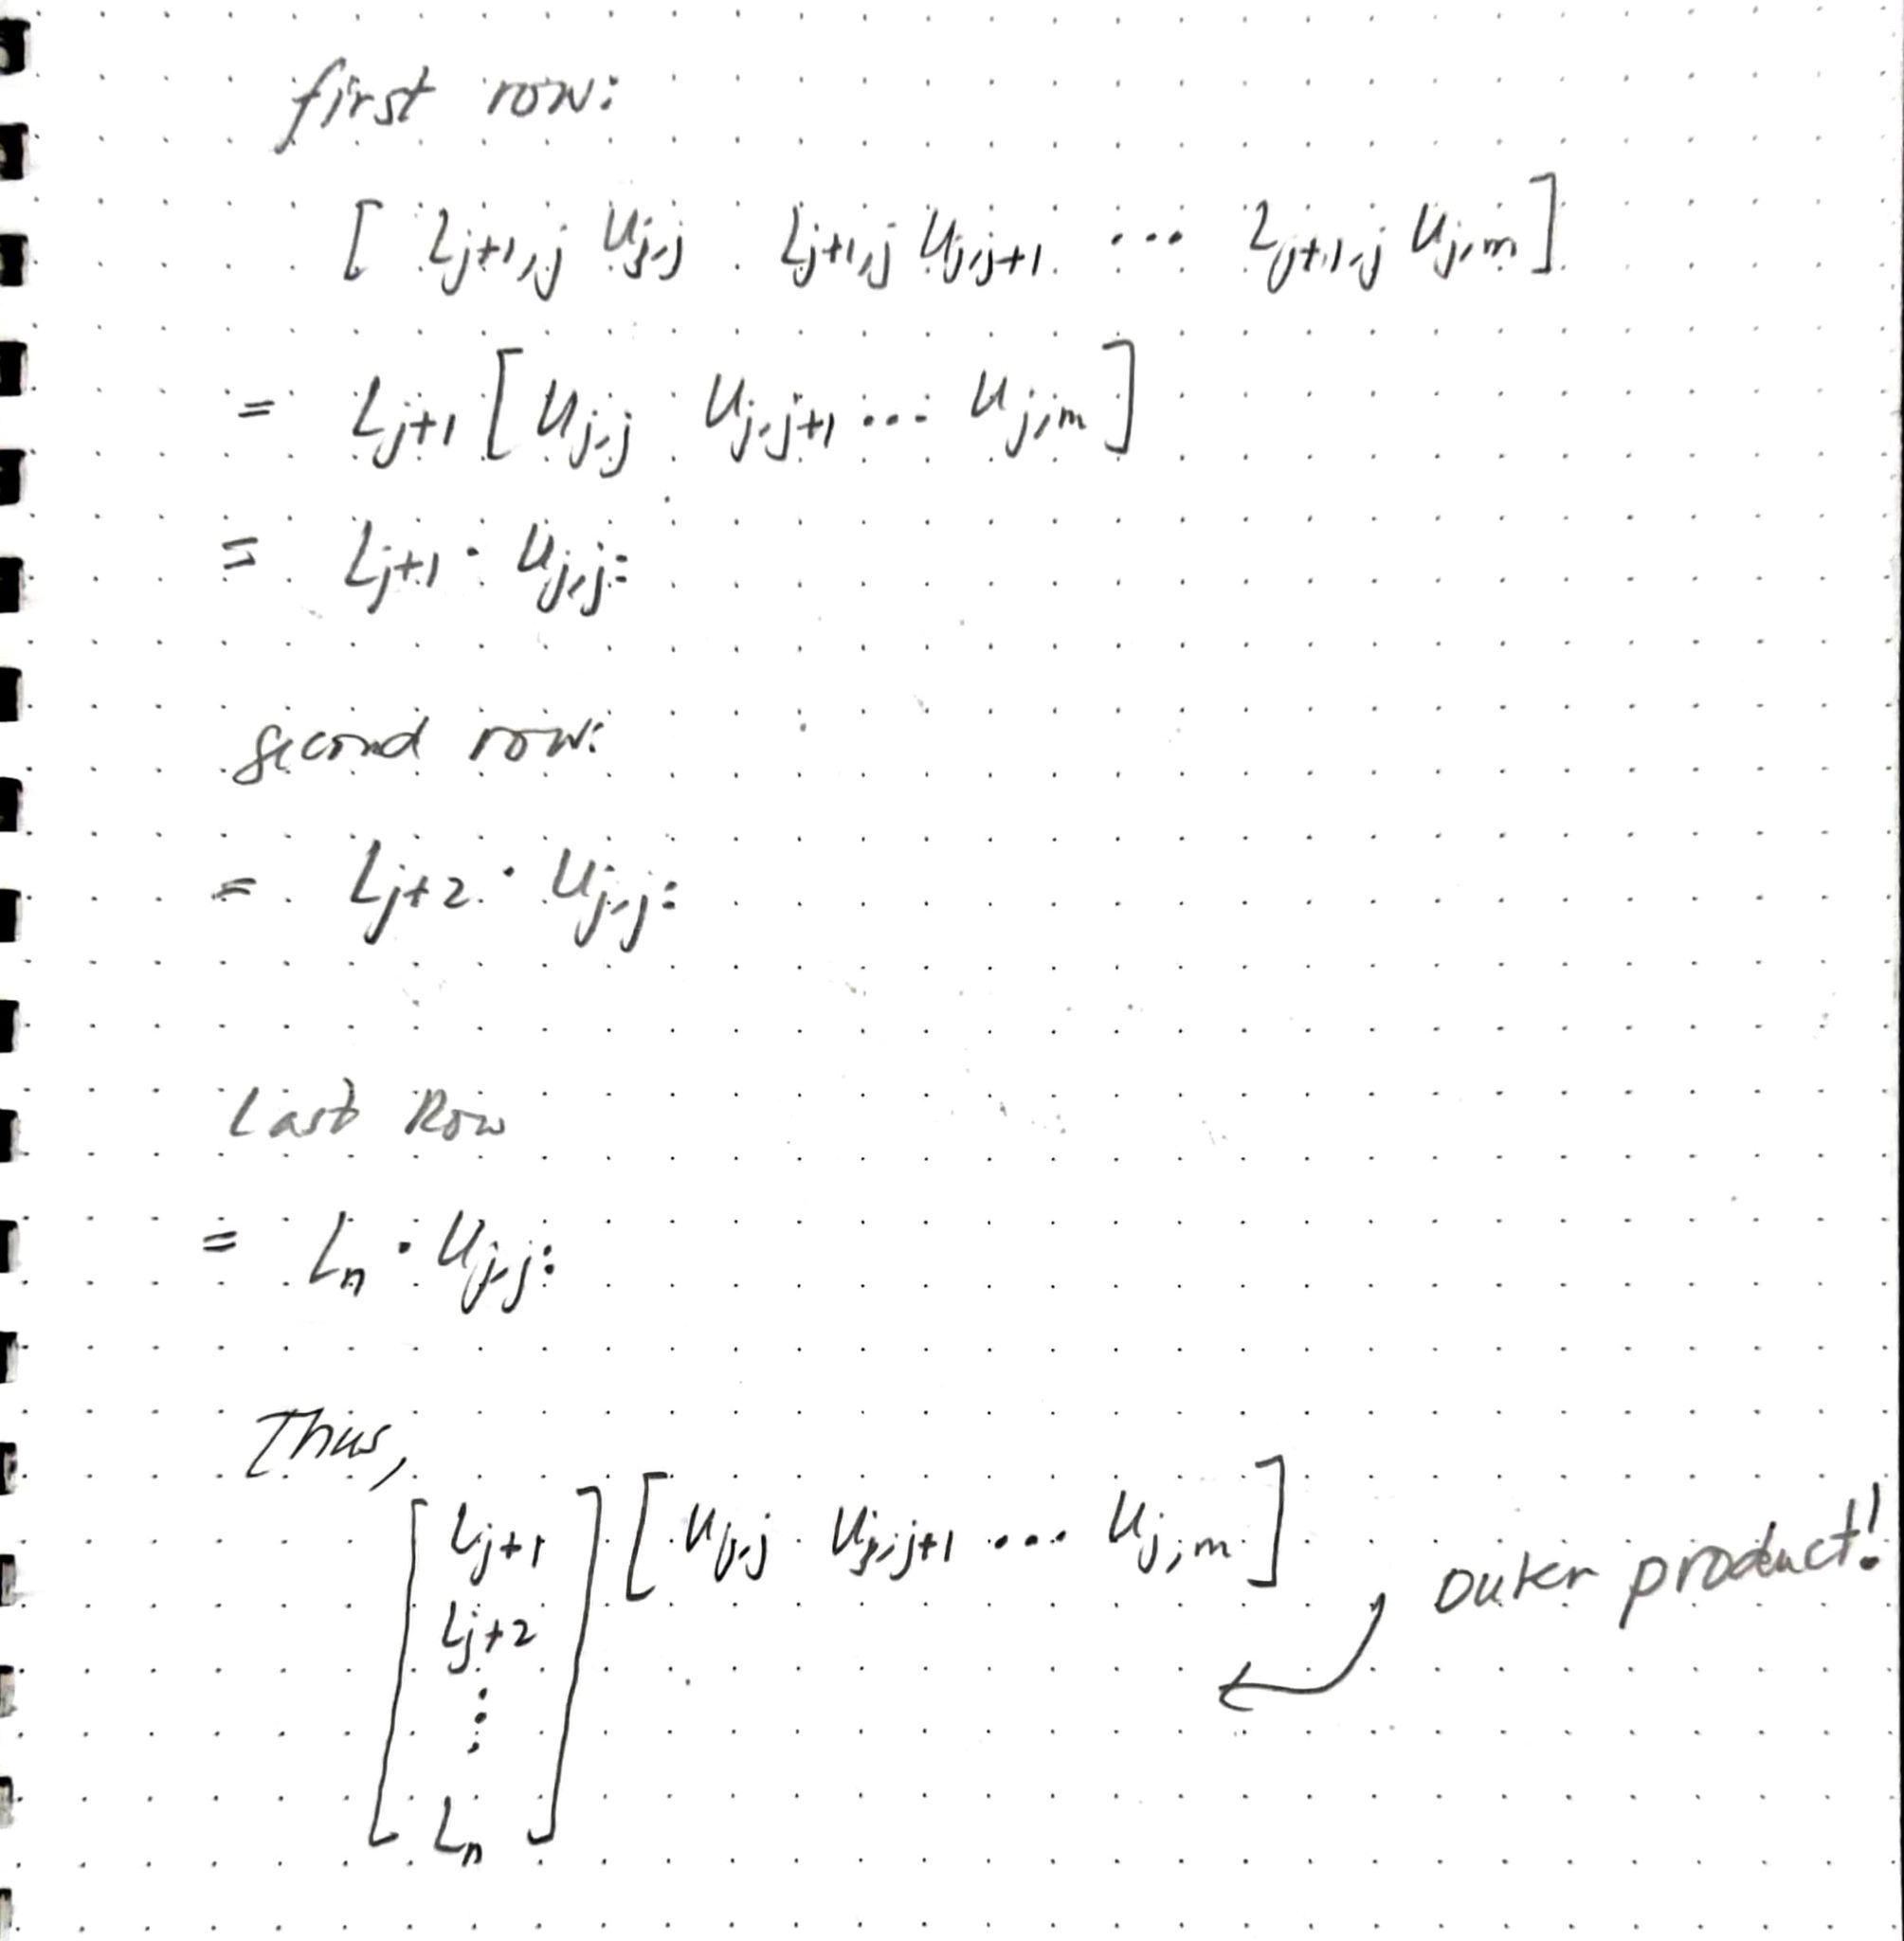 first row:
[ L_{j+1,j} U_{j,j} L_{j+1,j} U_{j,j+1} ... L_{j+1,j} U_{j,m} ]
= L_{j+1} [ U_{j,j} U_{j,j+1} ... U_{j,m} ]
= L_{j+1} · U_{j,j:}
second row:
= L_{j+2} · U_{j,j:}
Last Row
= L_n · U_{j,j:}
Thus,
[ L_{j+1} L_{j+2} ⋮ L_n ] [ U_{j,j} U_{j,j+1} ... U_{j,m} ]
outer product!